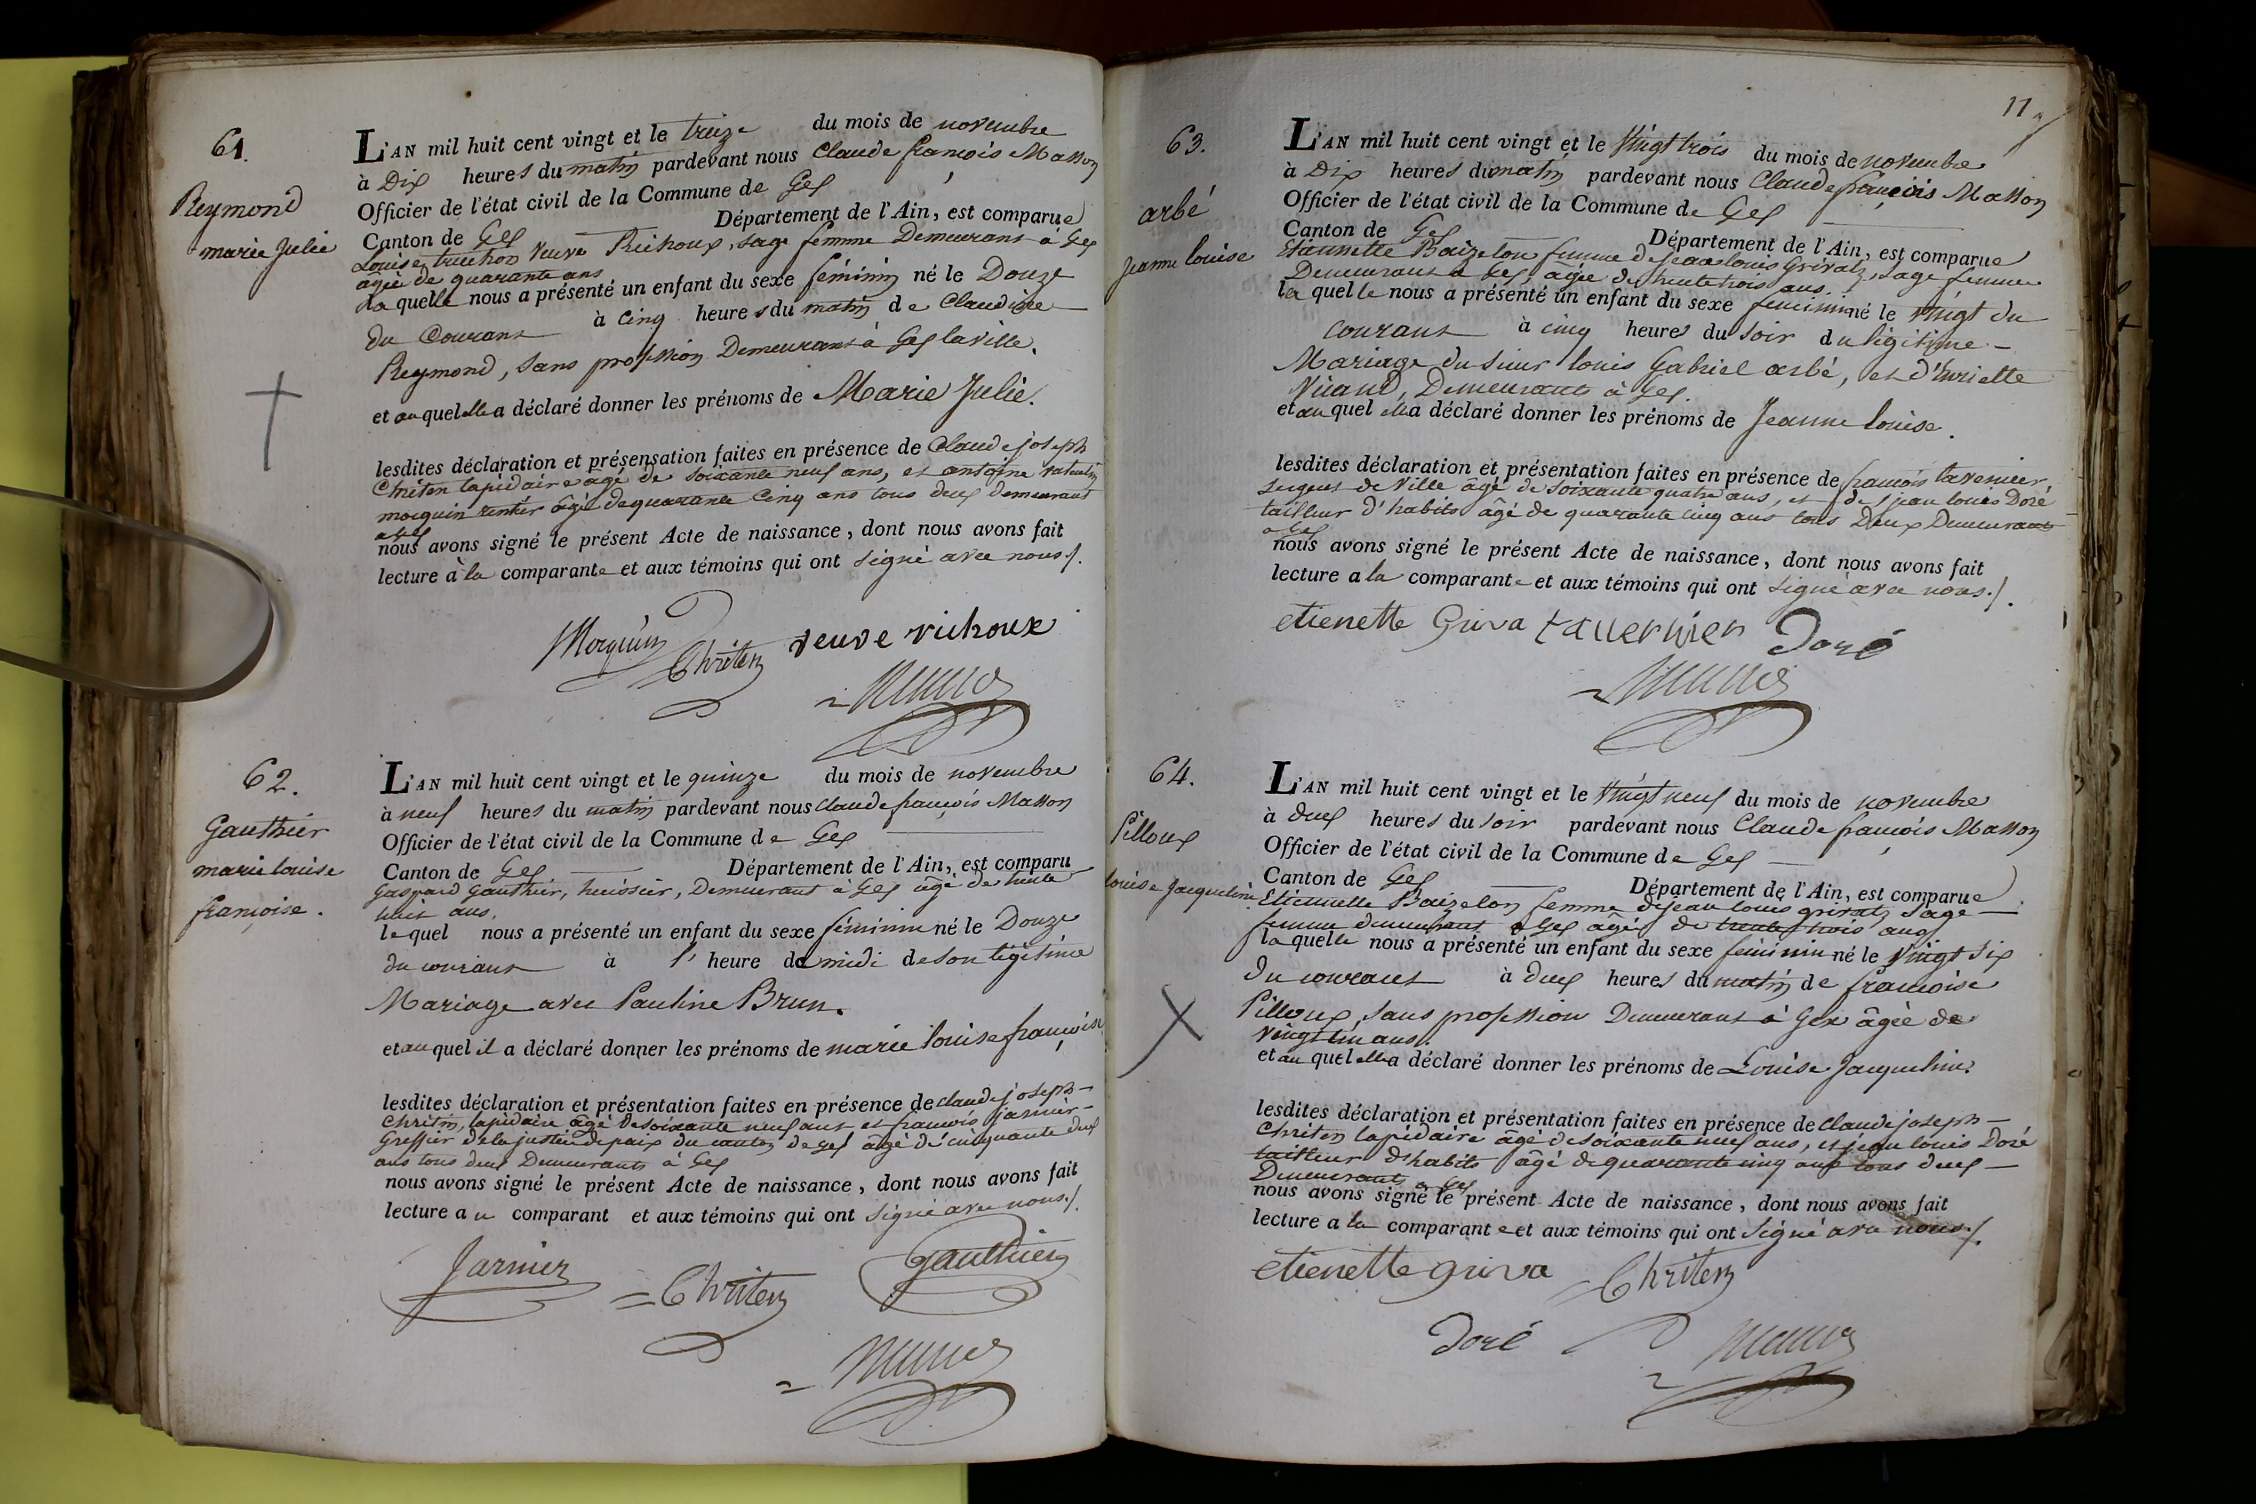 61.
Reymond
marie Julie
L'AN mil huit cent vingt et le treize du mois de novembre
à Dix heures du matin pardevant nous Claude françois Masson
Officier de l'état civil de la Commune de Gex
Canton de Gex Département de l'Ain, est comparue
Louise truchon veuve Richoux, sage femme Demeurant à Gex
agée de quarante ans
La quelle nous a présenté un enfant du sexe féminin né le Douze
du Courant à cinq heures du matin de Claudine
Reymond, sans profession Demeurant à Gex la ville.
et au quel elle a déclaré donner les prénoms de Marie Julie.
lesdites déclaration et présensation faites en présence de Claude joseph
Chriten lapidaire agé de soixante neuf ans, et antoine
morquin rentier âgé de quarante cinq ans tous deux demeurant
a Gex
nous avons signé le présent Acte de naissance, dont nous avons fait
lecture à la comparante et aux témoins qui ont signé avec nous./.
Morquin Chriten veuve richoux
62.
Gauthier
marie louise
françoise.
L'AN mil huit cent vingt et le quinze du mois de novembre
à neuf heures du matin pardevant nous Claude françois Masson
Officier de l'état civil de la Commune de Gex
Canton de Gex Département de l'Ain, est comparu
Gaspard Gauthier, huissier, Demeurant à Gex âgé de trente
huit ans.
le quel nous a présenté un enfant du sexe féminin né le Douze
du courant à 1' heure de midi de son légitime
Mariage avec Pauline Brun.
et au quel il a déclaré donner les prénoms de marie louise françoise
lesdites déclaration et présentation faites en présence de claude joseph
Chriten, lapidaire âgé de soixante neuf ans et françois jarnier
Greffier de la justice de paix du canton de gex âgé de cinquante deux
ans tous deux Demeurants à Gex
nous avons signé le présent Acte de naissance, dont nous avons fait
lecture au comparant et aux témoins qui ont signé avec nous./.
Jarnier Chriten Gauthier
11
63.
arbé
Jeanne louise
L'AN mil huit cent vingt et le Vingt trois du mois de novembre
à Dix heures du matin pardevant nous Claude françois Masson
Officier de l'état civil de la Commune de Gex
Canton de Gex Département de l'Ain, est comparue
Etiennette Baizelon femme de Jean louis Grivatz, sage femme
Demeurant à Gex, agée de trente trois ans.
la quelle nous a présenté un enfant du sexe feminin né le vingt du
courant à cinq heures du soir du légitime
Mariage du sieur louis Gabriel arbé, et d'huriette
Vuand, Demeurants à Gex.
et au quel elle a déclaré donner les prénoms de Jeanne louise.
lesdites déclaration et présentation faites en présence de françois tavernier,
sergent de Ville âgé de soixante quatre ans, et de jean louis Doré
tailleur d'habits âgé de quarante cinq ans tous Deux Demeurants
a Gex
nous avons signé le présent Acte de naissance, dont nous avons fait
lecture a la comparante et aux témoins qui ont signé avec nous./.
etienette Griva tavernier Doré
64.
Pilloux
louise Jacqueline
L'AN mil huit cent vingt et le Vingt neuf du mois de novembre
à deux heures du soir pardevant nous Claude françois Masson
Officier de l'état civil de la Commune de Gex
Canton de Gex Département de l'Ain, est comparue
Etiennette Baizelon femme de Jean louis grivatz sage
femme demeurant à Gex âgée de trente trois ans
la quelle nous a présenté un enfant du sexe féminin né le Vingt six
du courant à deux heures du matin de françoise
Pilloux, sans profession Demeurant à Gex âgée de
vingt un ans.
et au quel elle a déclaré donner les prénoms de Louise Jacqueline.
lesdites déclaration et présentation faites en présence de Claude joseph
Chriten lapidaire âgé de soixante neuf ans, et jean louis Doré
tailleur d'habits âgé de quarante cinq ans tous deux
Demeurants a Gex
nous avons signé le présent Acte de naissance, dont nous avons fait
lecture a la comparante et aux témoins qui ont signé avec nous./.
etienette griva Chriten
Doré